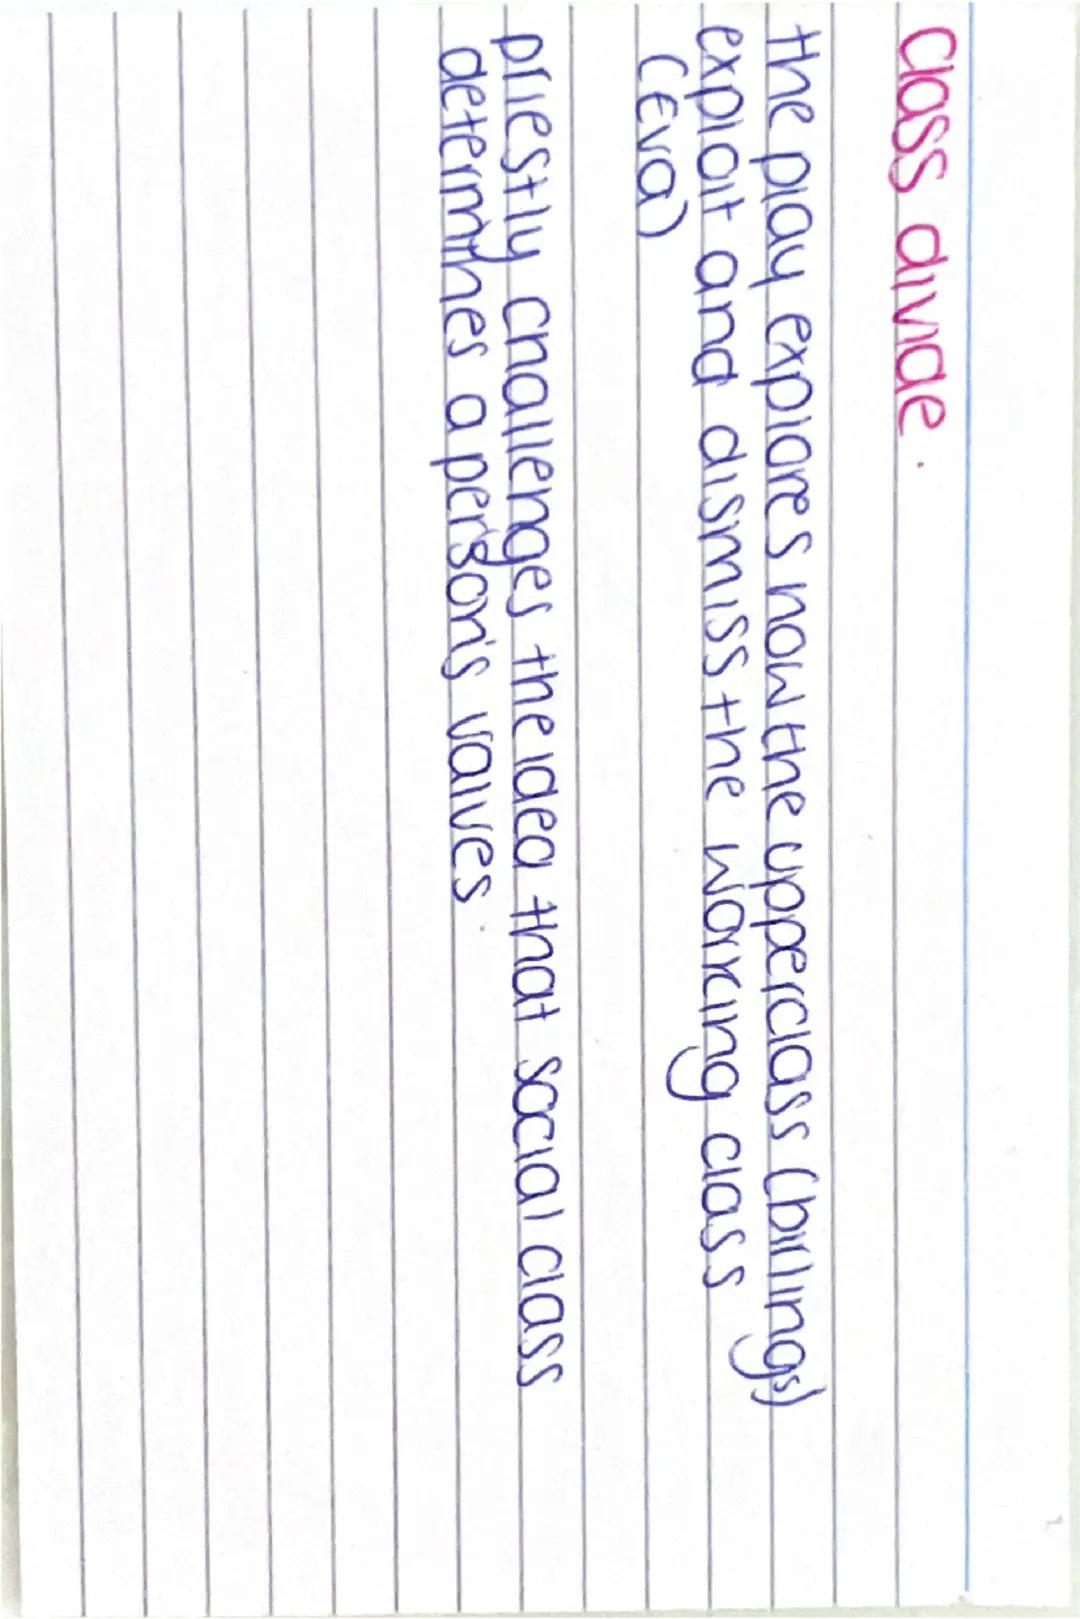 Class divide.
the play explores how the upperclass (birlings)
exploit and dismiss the working class
(Eva)
priestly challenges the idea that social class
determines a person's values.